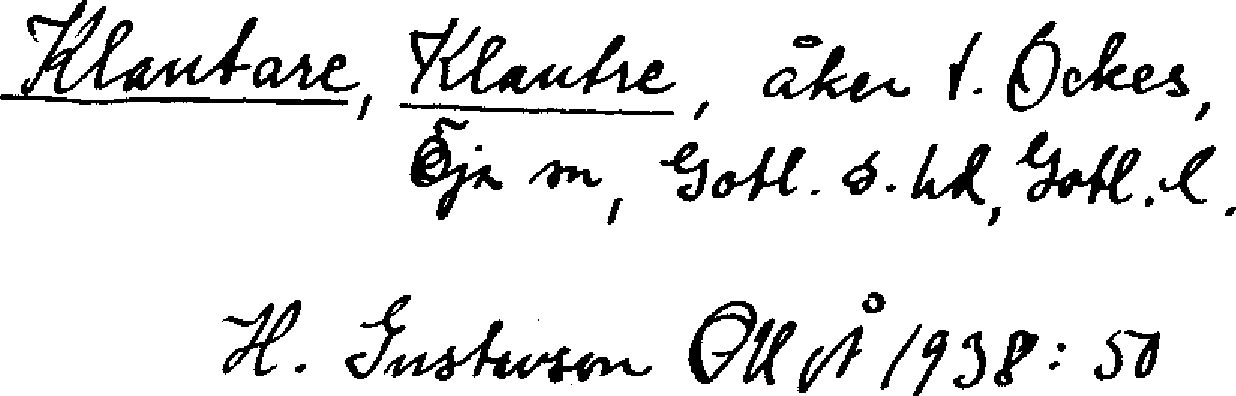 Klautare, Klautre, åker t. Ockes,
Öja sn, Gotl. s. hd, Gotl. l.
H. Gustavson OUÅ 1938: 50